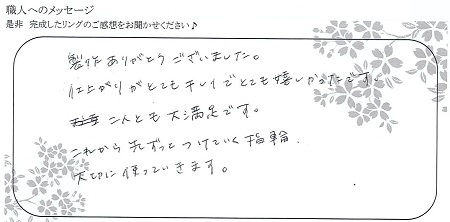 職人へのメッセージ
是非 完成したリングのご感想をお聞かせください♪
製作ありがとうございました。
仕上がりがとてもキレイでとても嬉しかったです。
二人とも大満足です。
これから先ずっとつけていく指輪、
大切に使っていきます。